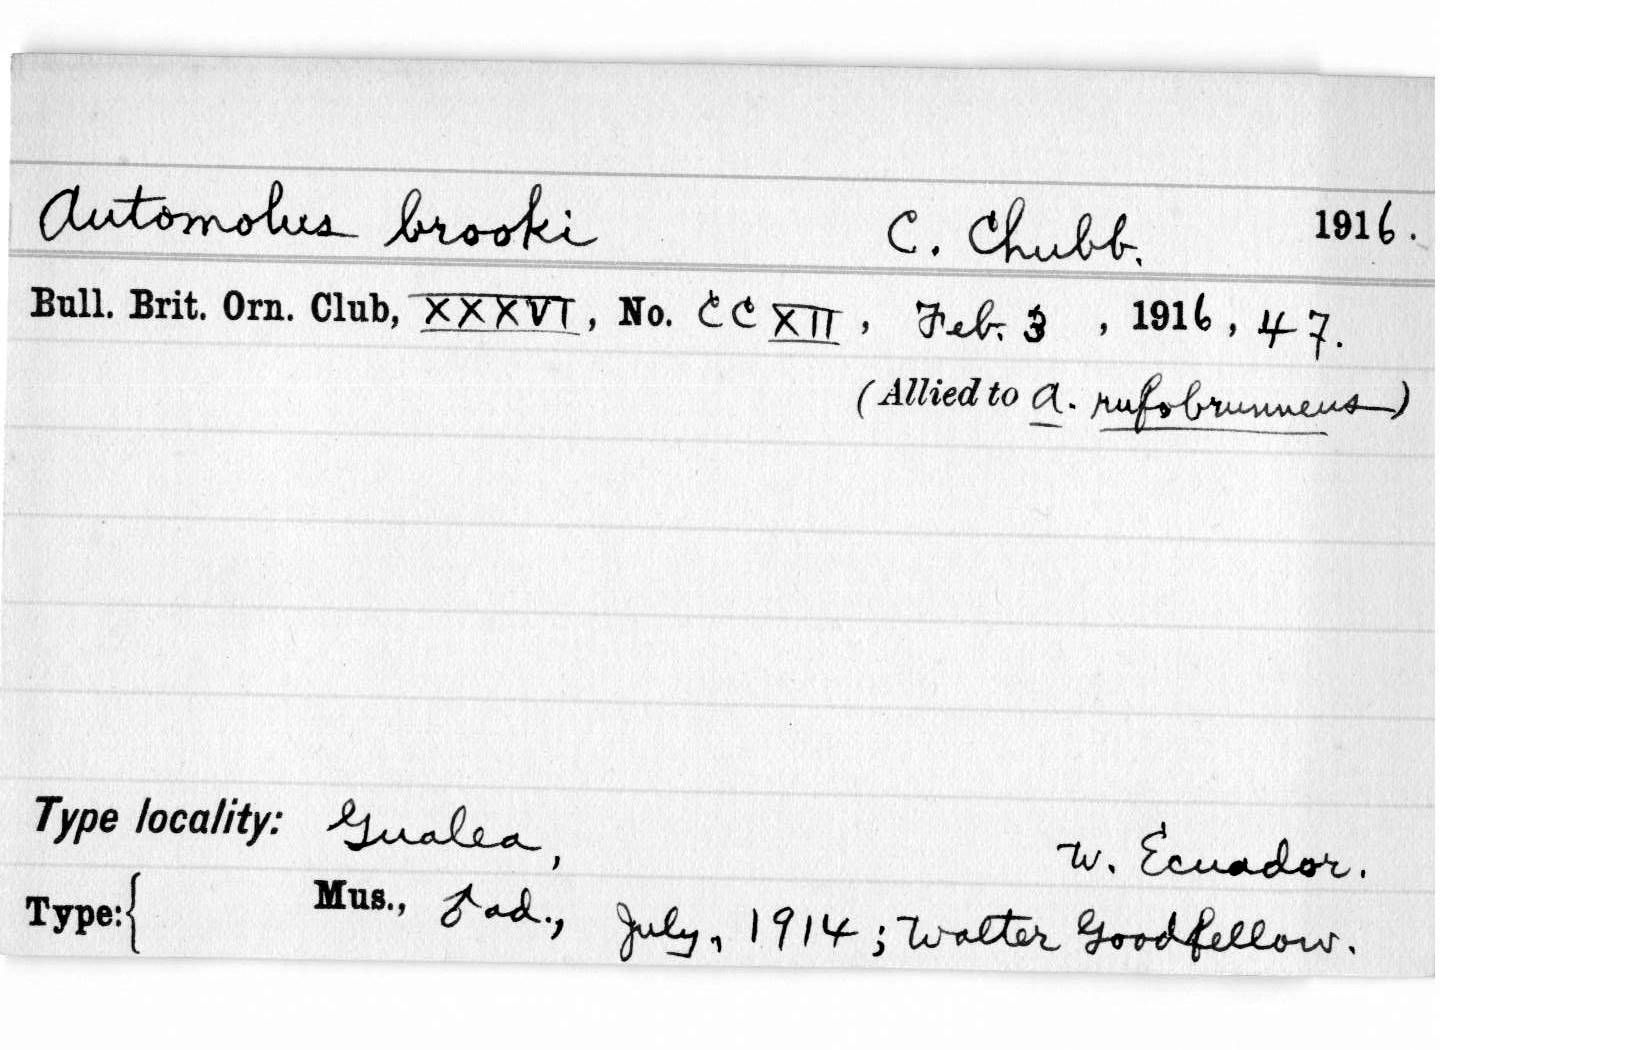 Automolus brooki C. Chubb. 1916.
Bull. Brit. Orn. Club, XXXVI, No. CCXII, Feb. 3, 1916, 47.
(Allied to A. rufobrunneus)
Type locality: Gualea, W. Ecuador.
Type:{ Mus., ♂ ad., July, 1914; Walter Goodfellow.